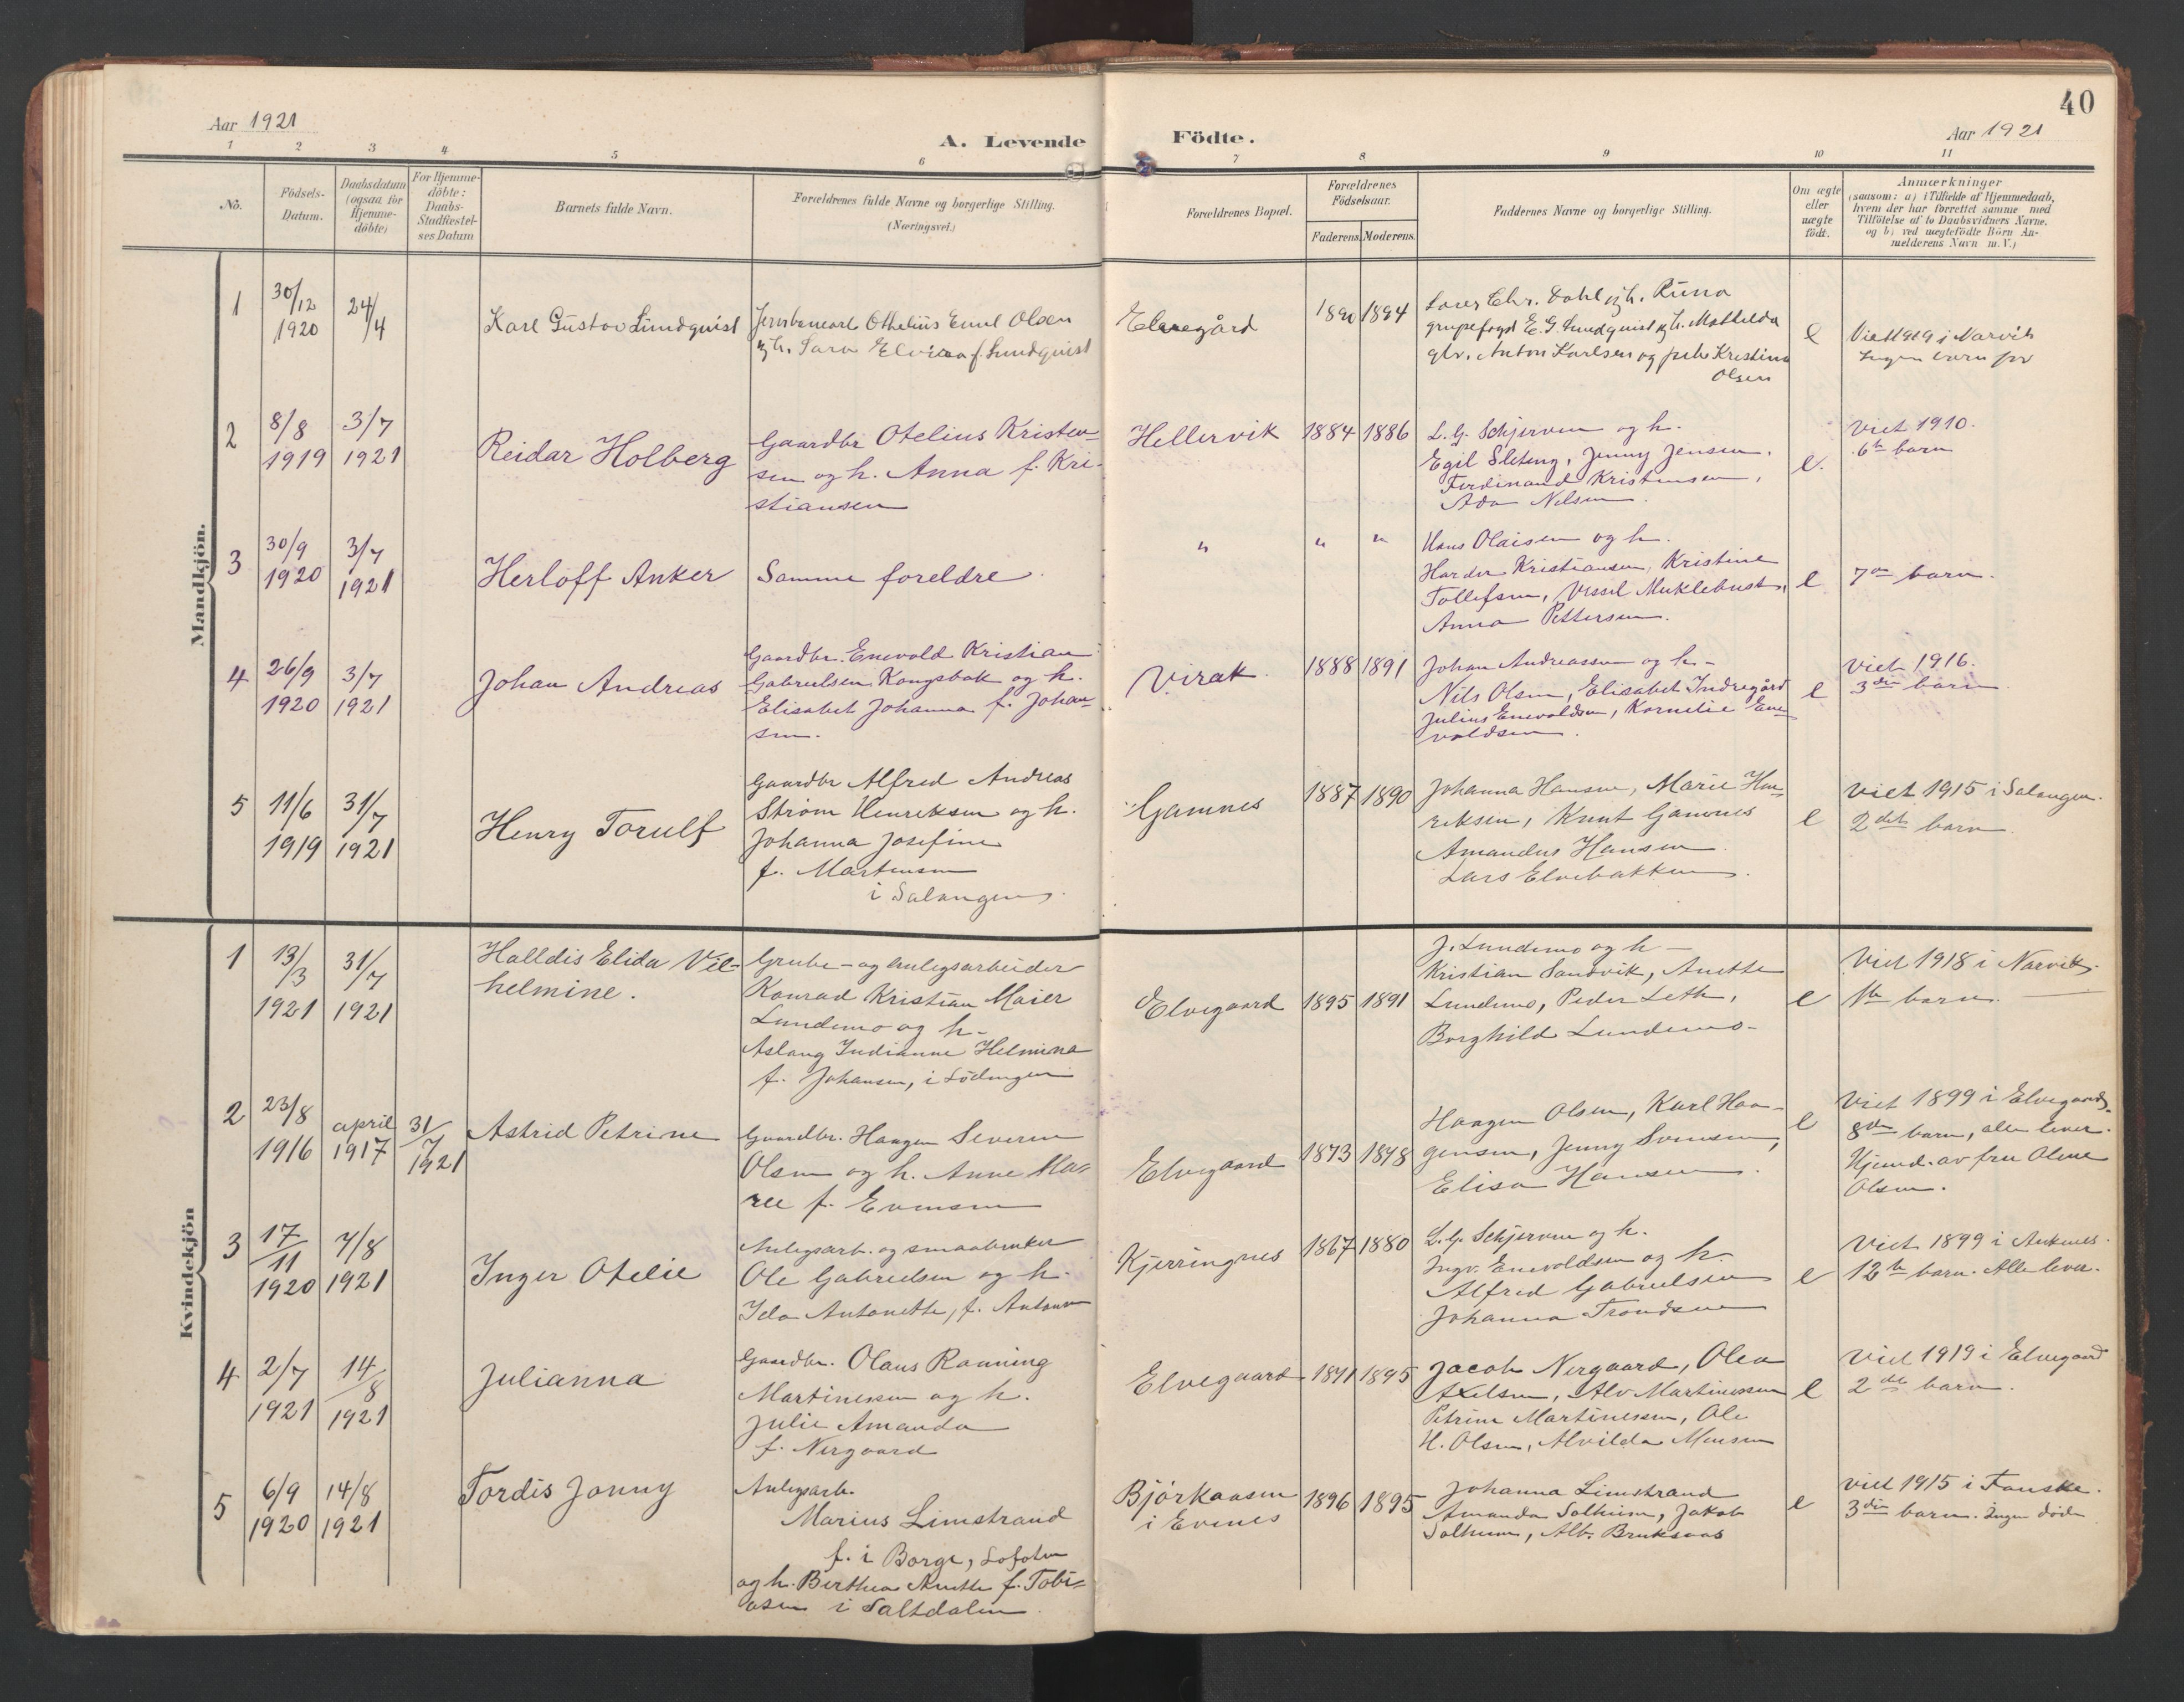 40
Aar 1921
A. Levende Födte.
Aar 1921
1 2 3 4 5 6 7 8 9 10 11
No.
Födsels-
Datum.
Daabsdatum
(ogsaa for
Hjemme-
döbte)
For Hjemme-
döbte:
Daabs-
Stadfæstel-
ses Datum
Barnets fulde Navn.
Forældrenes fulde Navne og borgerlige Stilling.
(Næringsvei.)
Forældrenes Bopæl.
Forældrenes
Födselsaar.
Faderens. Moderens.
Faddernes Navne og borgerlige Stilling.
Om ægte
eller
uægte
födt.
Anmærkninger
(saasom: a) i Tilfælde af Hjemmedaab,
hvem der har forrettet samme med
Tilföielse af to Daabsvidners Navne.
og b) ved uægtefödte Börn An-
melderens Navn m. V.)
Mandkjön.
1
30/12
1920
24/4
Karl Gustav Lundquist
Othelius Emil Olsen
og h. Sara Elvira f. Lundquist
Elvegård
1890 1894
Chr. Dahl og h. Runa
grupefogd E. G. Lundquist og h. Mathilda
Anton Karlsen og Kristina
Olsen
e
Viet 1919 i Narvik
Ingen barn før
2
8/8
1919
3/7
1921
Reidar Holberg
Gaardbr Otelius Kristen-
sen og h. Anna f. Kri-
stiansen
Hellervik
1884 1886
L. G. Schjerven og h.
Egil Sleteng, Jenny Jensen,
Ferdinand Kristensen,
Ada Nilsen.
e.
Viet 1910.
6te barn
3
30/9
1920
3/7
1921
Herloff Anker
Samme foreldre.
" " "
Hans Olaisen og h.
Harder Kristiansen, Kristine
Tollefsen, Vessel Myklebust,
Anna Pettersen.
e
7de barn.
4
26/9
1920
3/7
1921
Johan Andreas
Gaardbr. Enevold Kristian
Gabrielsen Kongsbak og h.
Elisabet Johanna f. Johan-
sen.
Virak
1888 1891
Johan Andreassen og h.
Nils Olsen, Elisabet Indregård
Julius Enevoldsen, Kornelie Ene-
voldsen.
e
Viet 1916.
3die barn
5
11/6
1919
31/7
1921
Henry Torulf
Gaardbr Alfred Andreas
Strøm Henriksen og h.
Johanna Josefine
f. Martensen
i Salangen.
Gamnes
1887 1890
Johanna Hansen, Marie Hen-
riksen, Knut Gamnes
Amandus Hansen
Lars Elvebakken.
e
Viet 1915 i Salangen.
2det barn
Kvindekjön
1
13/3
1921
31/7
1921
Halldis Elida Vil-
helmine.
Grube- og anlegsarbeider
Konrad Kristian Maier
Lundemo og h.
Aslaug Indianne Helmina
f. Johansen, i Lödingen
Elvegaard
1895 1891
J. Lundemo og h.
Kristian Sandvik, Anette
Lundemo, Peder Leth,
Borghild Lundemo.
e
Viet 1918 i Narvik.
1te barn.
2
23/8
1916
april
1917
31/7
1921
Astrid Petrine
Gaardbr. Haagen Severin
Olsen og h. Anne Ma-
rie f. Evensen
Elvegaard
1873 1878
Haagen Olsen, Karl Haa-
gensen, Jenny Svensen,
Elisa Hansen.
e
Viet 1899 i Elvegaard.
8de barn, alle lever.
Hjemd. av fru Oline
Olsen.
3
17/11
1920
7/8
1921
Inger Otelie
Anlegsarb. og smaabruker
Ole Gabrielsen og h.
Ida Antonette, f. Antonsen
Kjerringnes
1867 1880
L. G. Schjerven og h.
Ingv. Enevoldsen og h.
Alfred Gabrielsen
Johanna Trondsen
e
Viet 1899 i Ankenes.
12te barn. Alle lever.
4
2/7
1921
14/8
1921
Julianna
Gaardbr. Olaus Rønning
Martinessen og h.
Julie Amanda
f. Nergaard
Elvegaard
1891 1895
Jacob Nergaard, Olea
Axelsen, Alv Martinessen
Petrine Martinessen, Ole
H. Olsen, Alvilda Monsen
e
Viet 1919 i Elvegaard
2det barn.
5
6/9
1920
14/8
1921
Tordis Jonny
Anlegsarb.
Marius Limstrand
f. i Borge, Lofoten
og h. Berthea Anette f. Tobi-
asen i Saltdalen.
Bjørkaasen
i Evenes
1896 1895
Johanna Limstrand
Amanda Solheim, Jakob
Solheim, Alb. Bruksaas
e
Viet 1915 i Fauske.
3die barn. Ingen døde